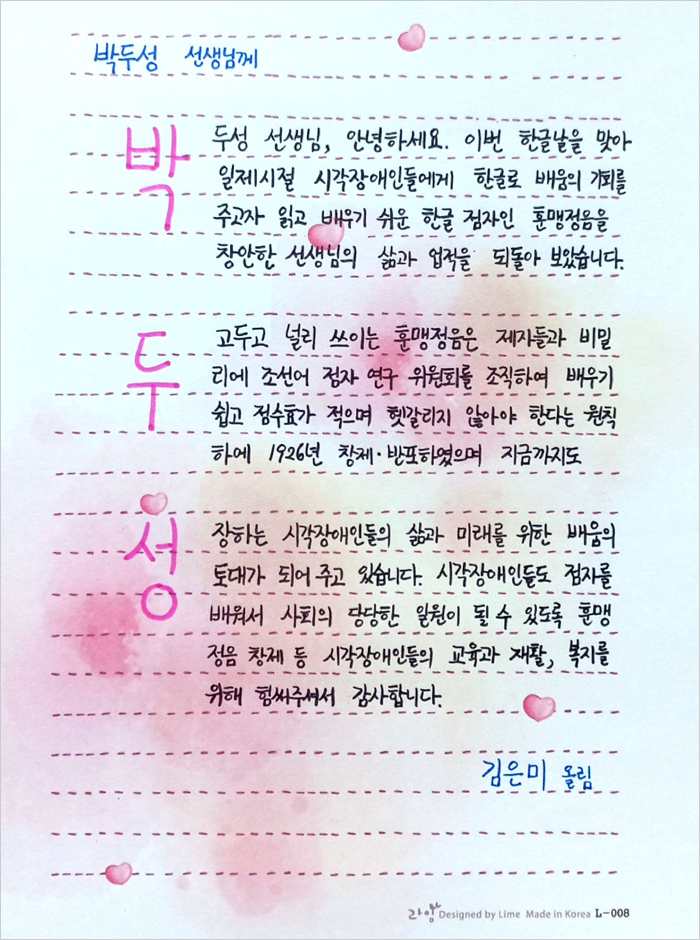 박두성 선생님께
박
두성 선생님, 안녕하세요. 이번 한글날을 맞아
일제시절 시각장애인들에게 한글로 배움의 기회를
주고자 읽고 배우기 쉬운 한글 점자인 훈맹정음을
창안한 선생님의 삶과 업적을 되돌아 보았습니다.
두
고두고 널리 쓰이는 훈맹정음은 제자들과 비밀
리에 조선어 점자 연구 위원회를 조직하여 배우기
쉽고 점수효가 적으며 헷갈리지 않아야 한다는 원칙
하에 1926년 창제·반포하였으며 지금까지도
성
장하는 시각장애인들의 삶과 미래를 위한 배움의
토대가 되어 주고 있습니다. 시각장애인들도 점자를
배워서 사회의 당당한 일원이 될 수 있도록 훈맹
정음 창제 등 시각장애인들의 교육과 재활, 복지를
위해 힘써주셔서 감사합니다.
김은미 올림
라임 Designed by Lime Made in Korea L-008